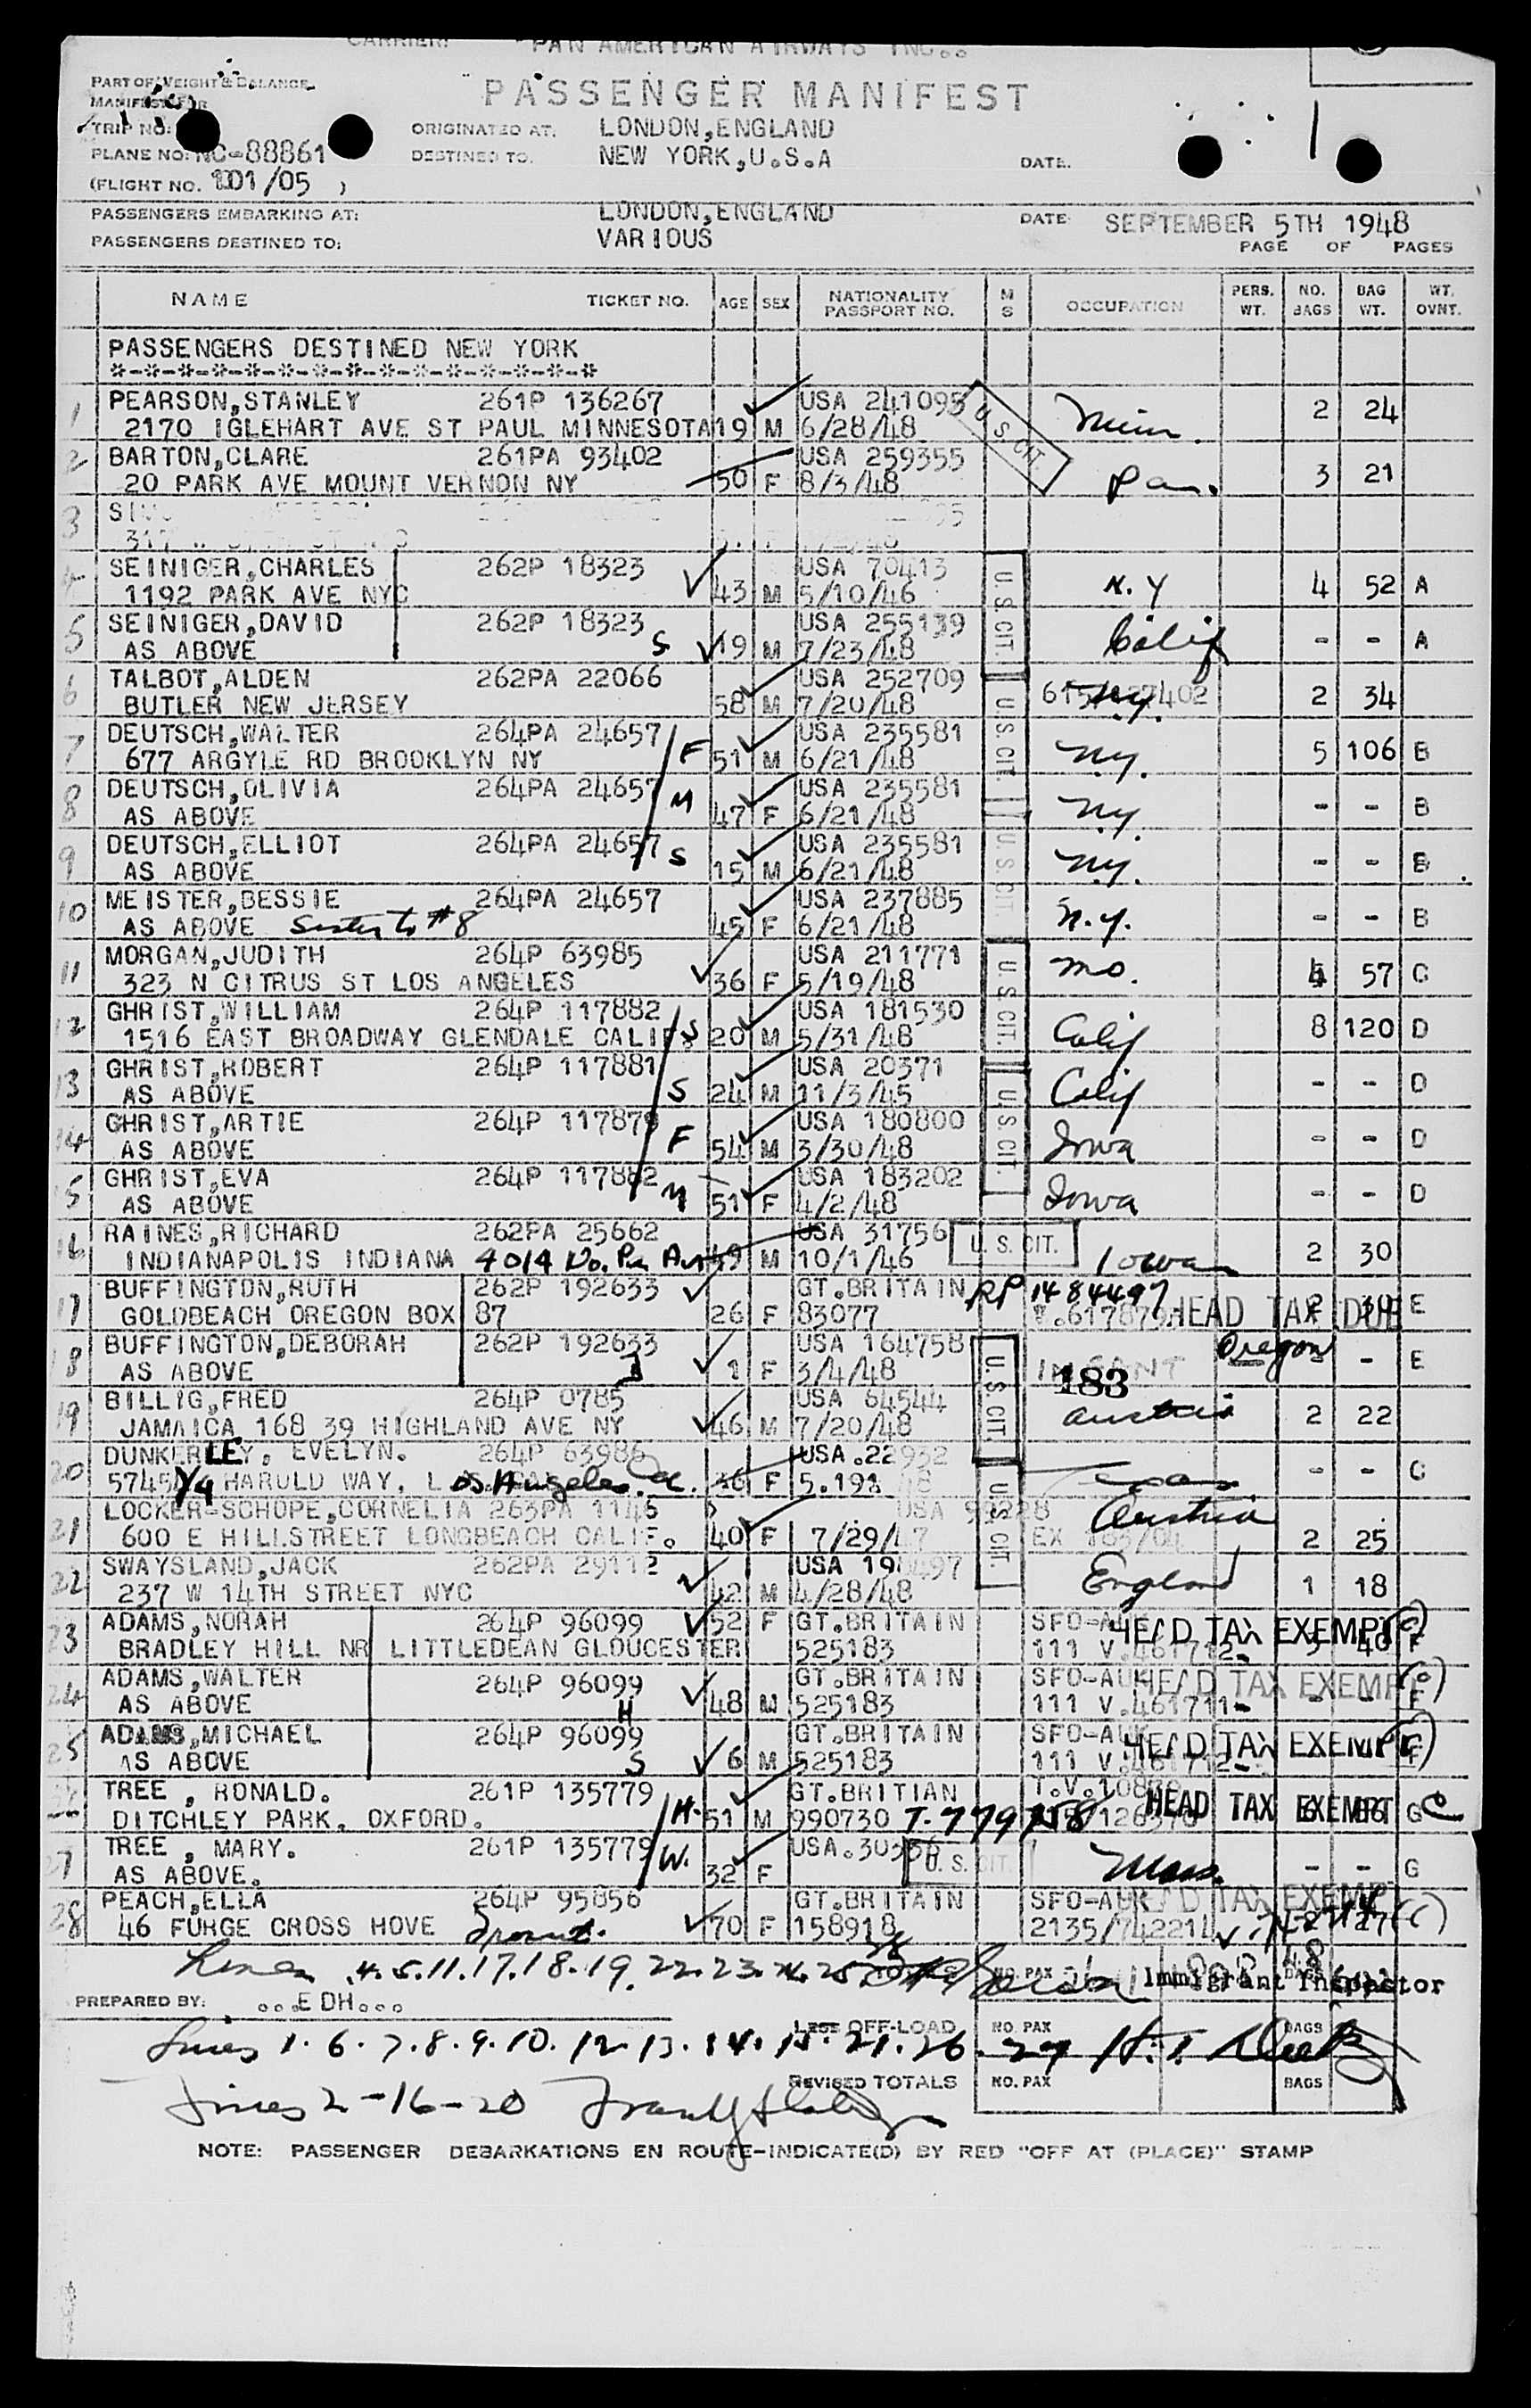 CARRIER: PAN AMERICAN AIRWAYS INC..
PART OF WEIGHT & BALANCE
MANIFEST FOR
PASSENGER MANIFEST
TRIP NO:
ORIGINATED AT. LONDON,ENGLAND
PLANE NO: NC-88861
DESTINED TO. NEW YORK,U.S.A
DATE.
(FLIGHT NO. 101/05 )
PASSENGERS EMBARKING AT: LONDON,ENGLAND
DATE SEPTEMBER 5TH 1948
PASSENGERS DESTINED TO: VARIOUS
PAGE OF PAGES
NAME TICKET NO. AGE SEX NATIONALITY PASSPORT NO. M S OCCUPATION PERS. WT. NO. BAGS BAG WT. WT. OVNT.
PASSENGERS DESTINED NEW YORK
*-*-*-*-*-*-*-*-*-*-*-*-*-*-*
1 PEARSON,STANLEY 261P 136267 USA 241095 U.S. CIT. Minn. 2 24
2170 IGLEHART AVE ST PAUL MINNESOTA 19 M 6/28/48
2 BARTON,CLARE 261PA 93402 USA 259355 Pa. 3 21
20 PARK AVE MOUNT VERNON NY 50 F 8/3/48
3
4 SEINIGER,CHARLES 262P 18323 USA 70413 U.S. CIT. N.Y 4 52 A
1192 PARK AVE NYC 43 M 5/10/46
5 SEINIGER,DAVID 262P 18323 USA 255139 Calif - - A
AS ABOVE S 19 M 7/23/48
6 TALBOT,ALDEN 262PA 22066 USA 252709 U.S. CIT. N.Y. 2 34
BUTLER NEW JERSEY 58 M 7/20/48
7 DEUTSCH,WALTER 264PA 24657 F USA 235581 N.Y. 5 106 B
677 ARGYLE RD BROOKLYN NY 51 M 6/21/48
8 DEUTSCH,OLIVIA 264PA 24657 M USA 235581 N.Y. - - B
AS ABOVE 47 F 6/21/48
9 DEUTSCH,ELLIOT 264PA 24657 S USA 235581 U.S. CIT. N.Y. - - B
AS ABOVE 15 M 6/21/48
10 MEISTER,BESSIE 264PA 24657 USA 237885 N.Y. - - B
AS ABOVE Sister to #8 45 F 6/21/48
11 MORGAN,JUDITH 264P 63985 USA 211771 U.S. CIT. Mo. 57 C
323 N CITRUS ST LOS ANGELES 36 F 5/19/48
12 GHRIST,WILLIAM 264P 117882 USA 181530 Calif 8 120 D
1516 EAST BROADWAY GLENDALE CALIF S 20 M 5/31/48
13 GHRIST,ROBERT 264P 117881 USA 20371 U.S. CIT. Calif - - D
AS ABOVE S 24 M 11/3/45
14 GHRIST,ARTIE 264P 117879 USA 180800 Iowa - - D
AS ABOVE F 54 M 3/30/48
15 GHRIST,EVA 264P 117882 USA 183202 Iowa - - D
AS ABOVE M 51 F 4/2/48
16 RAINES,RICHARD 262PA 25662 USA 31756 U.S. CIT. Iowa 2 30
INDIANAPOLIS INDIANA 4014 No. 39 M 10/1/46
17 BUFFINGTON,RUTH 262P 192633 GT.BRITAIN RP 1484497 HEAD TAX DUE E
GOLDBEACH OREGON BOX 87 26 F 83077
18 BUFFINGTON,DEBORAH 262P 192633 USA 164758 U.S. CIT. INFANT 183 Oregon - E
AS ABOVE 1 F 3/4/48
19 BILLIG,FRED 264P 0785 USA 64544 Austria 2 22
JAMAICA 168 39 HIGHLAND AVE NY 46 M 7/20/48
20 DUNKERLEY, EVELYN. 264P 63986 USA.22932 U.S. CIT. Texas - - C
5745 1/4 HAROLD WAY, Los Angeles. Cal. 36 F
21 LOCKER-SCHOPE,CORNELIA 263PA 1146 Austria
600 E HILLSTREET LONGBEACH CALIF. 40 F 7/29/47 2 25
22 SWAYSLAND,JACK 262PA 29112 USA England 1 18
237 W 14TH STREET NYC 42 M 4/28/48
23 ADAMS,NORAH 264P 96099 52 F GT.BRITAIN SFO-AUK HEAD TAX EXEMPT (C)
BRADLEY HILL NR LITTLEDEAN GLOUCESTER 525183 111 V.461712 F
24 ADAMS,WALTER 264P 96099 GT.BRITAIN SFO-AUK HEAD TAX EXEMPT (C)
AS ABOVE H 48 M 525183 111 V.461711 - - F
25 ADAMS,MICHAEL 264P 96099 GT.BRITAIN SFO-AUK HEAD TAX EXEMPT (C)
AS ABOVE S 6 M 525183 111 V.461712 F
TREE , RONALD. 261P 135779 GT.BRITIAN HEAD TAX EXEMPT G C
DITCHLEY PARK. OXFORD. H. 51 M 990730 T-779758
27 TREE , MARY. 261P 135779 USA. U.S. CIT. Mass. - - G
AS ABOVE. W. 32 F
28 PEACH,ELLA 264P 95856 GT.BRITAIN SFO-AUK HEAD TAX EXEMPT (C)
46 FURGE CROSS HOVE 70 F 158918 27
Lines 4.5.11.17.18.19.22.23.24.25 NO. PAX BAGS Immigrant Inspector
PREPARED BY: ...EDH...
LESS OFF-LOAD NO. PAX BAGS
Lines 1.6.7.8.9.10.12.13.14.15.21.26.27
REVISED TOTALS NO. PAX BAGS
Lines 2-16-20
NOTE: PASSENGER DEBARKATIONS EN ROUTE-INDICATE(D) BY RED "OFF AT (PLACE)" STAMP